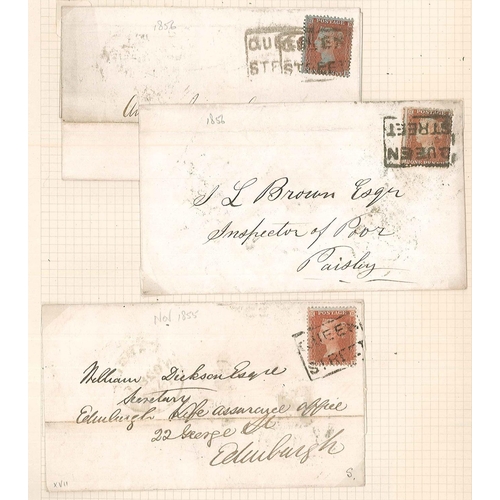 1856
QUEEN QUEEN
STREET STREET
1856
QUEEN
STREET
J L Brown Esqr
Inspector of Poor
Paisley
Nov 1855
POSTAGE
QUEEN
STREET
William Dickson Esqre
Secretary
Edinburgh Life assurance office
22 George St
Edinburgh
XVII
S.